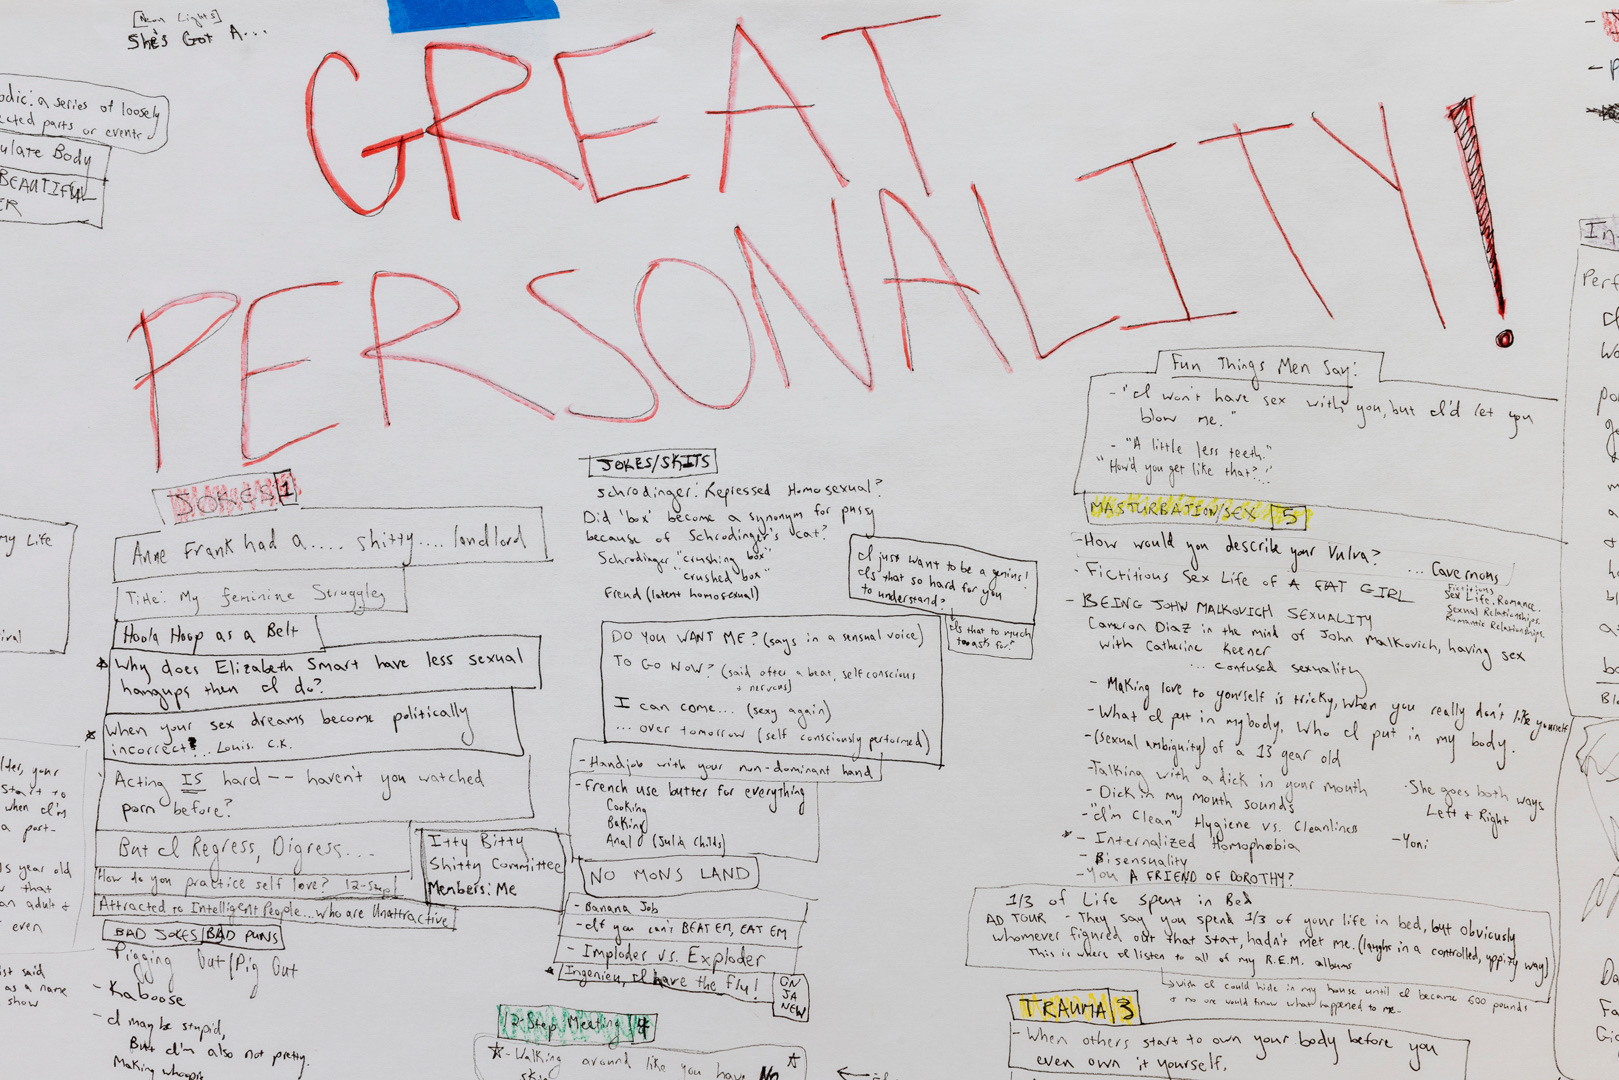 [Neon Lights]
She's Got A...
GREAT
PERSONALITY!
odic: a series of loosely
ected parts or events
ulate Body
BEAUTIFUL
ER
My Life
JOKES 1
Anne Frank had a..... shitty.... landlord
Title: My feminine Struggles
Hoola Hoop as a Belt
Why does Elizabeth Smart have less sexual
hangups then I do?
When your sex dreams become politically
incorrect?... Louis. C.K.
Acting IS hard -- haven't you watched
porn before?
But I Regress, Digress...
How do you practice self love? 12-Step!
Attracted to Intelligent People...who are Unattractive
Itty Bitty
Shitty Committee
Members: Me
BAD JOKES/BAD PUNS
Pigging Out/Pig Out
- Kaboose
- I may be stupid,
But I'm also not pretty.
Making whoopie
lder, your
start to
when I'm
a part-
s year old
that
an adult +
even
st said
as a name
show
JOKES/SKITS
Schrodinger: Repressed Homosexual?
Did 'box' become a synonym for pussy
because of Schrodinger's cat?
Schrodinger "crushing box"
"crushed box"
Freud (latent homosexual)
I just want to be a genius!
Is that so hard for you
to understand?
Is that to much
to ask for?
DO YOU WANT ME? (says in a sensual voice)
TO GO NOW? (said after a beat, self conscious
+ nervous)
I can come... (sexy again)
... over tomorrow (self consciously performed)
- Handjob with your non-dominant hand
- French use butter for everything
Cooking
Baking
Anal (Julia Childs)
NO MONS LAND
- Banana Job
- If you can't BEAT EM, EAT EM
- Imploder vs. Exploder
Ingenieu, I have the fly!
ON
JA
NEW
12-Step Meeting 4
- Walking around like you have No
skin
Fun Things Men Say:
- "I won't have sex with you, but I'd let you
blow me."
- "A little less teeth."
"How'd you get like that?"
MASTURBATION/SEX 5
- How would you describe your Vulva?
... Cavernous
- Fictitious Sex Life of A FAT GIRL
Fictitious
Sex Life. Romance.
Sexual Relationships.
Romantic Relationships.
- BEING JOHN MALKOVICH SEXUALITY
Cameron Diaz in the mind of John Malkovich, having sex
with Catherine Keener
... confused sexuality
- Making love to yourself is tricky, when you really don't like yourself
- What I put in my body. Who I put in my body.
- (Sexual ambiguity) of a 13 year old
- Talking with a dick in your mouth
- Dick in my mouth sounds
- "I'm Clean" Hygiene vs. Cleanliness
- Internalized Homophobia
- Bisensuality
- YOU A FRIEND OF DOROTHY?
- She goes both ways
Left + Right
- Yoni
1/3 of Life Spent in Bed
AD TOUR - They say you spend 1/3 of your life in bed, but obviously
whomever figured out that stat, hadn't met me. (laughs in a controlled, uppity way)
This is where I listen to all of my R.E.M. albums
wish I could hide in my house until I became 600 pounds
+ no one would know what happened to me.
TRAUMA 3
- When others start to own your body before you
even own it yourself.
In
Perf